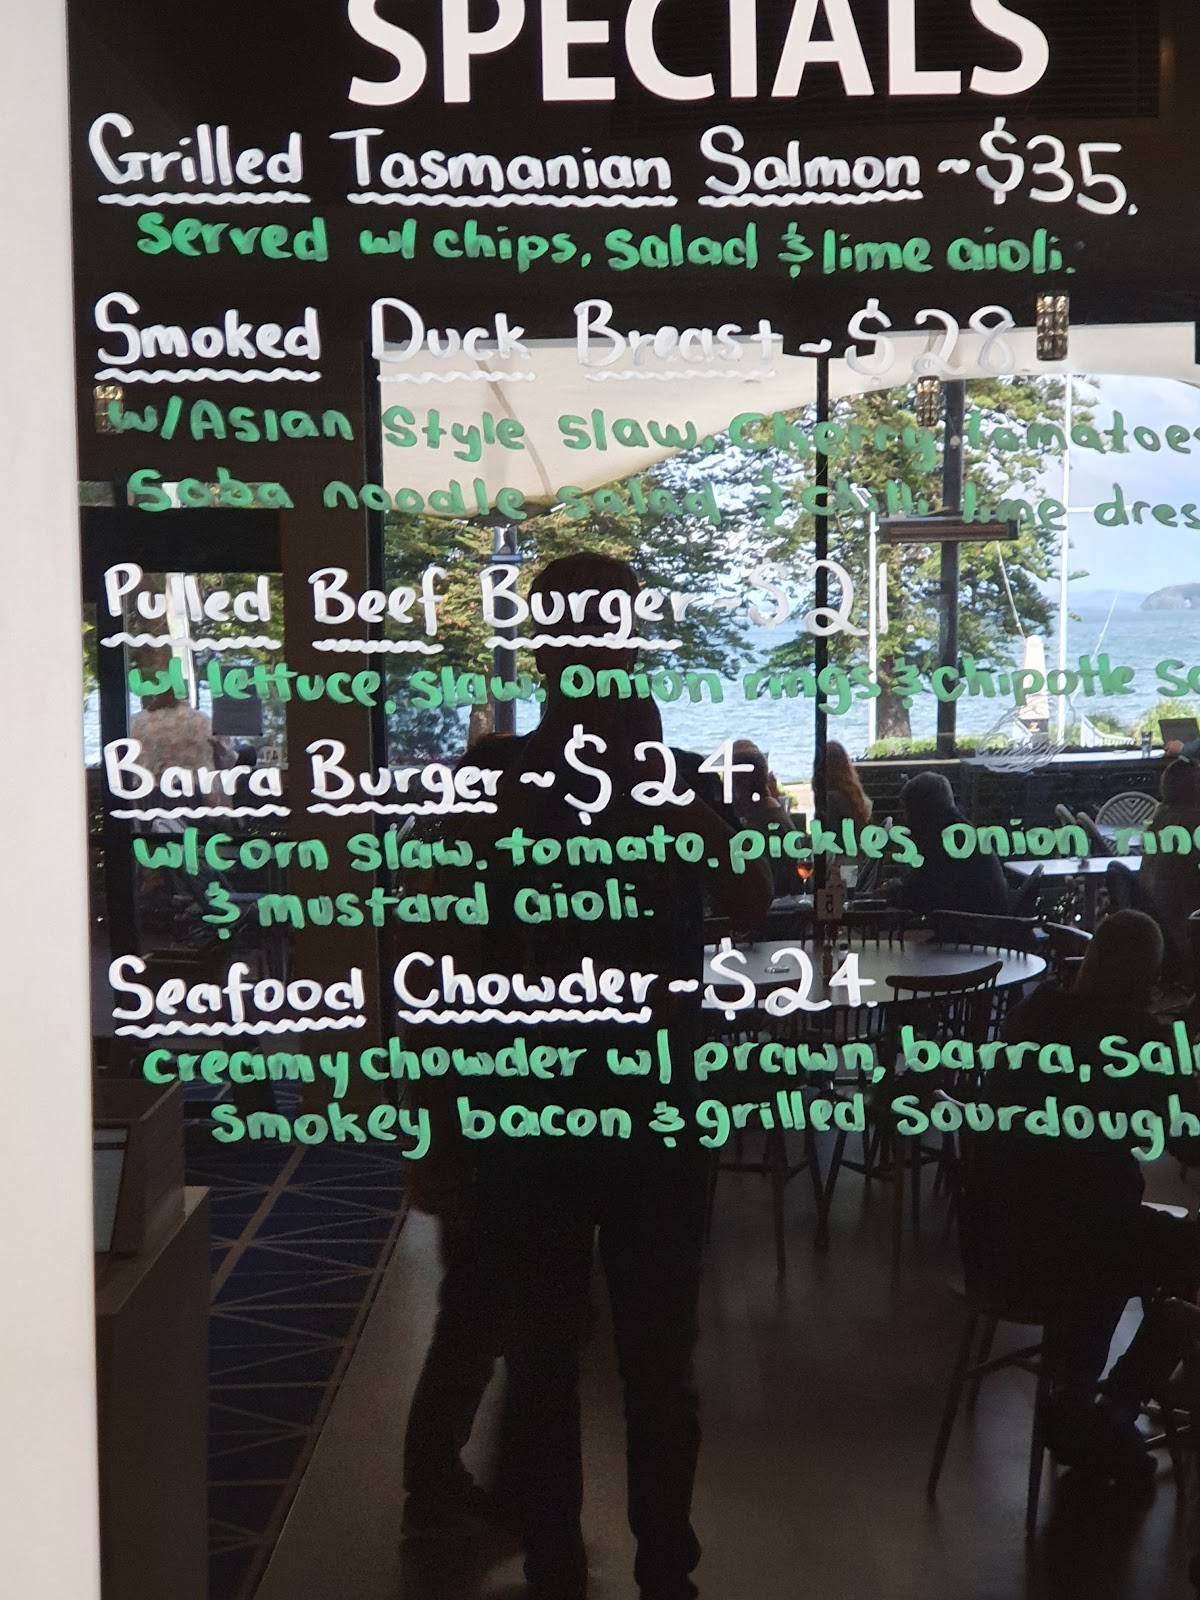 SPECIALS
Grilled Tasmanian Salmon ~ $35.
served w/ chips, salad & lime aioli.
Smoked Duck Breast ~ $28
w/ Asian style slaw, Cherry tomatoes
Soba noodle salad & chilli lime dres
Pulled Beef Burger ~ $21
w/ lettuce, slaw, onion rings & chipotle
Barra Burger ~ $24.
w/ corn slaw, tomato, pickles, onion rin
& mustard aioli.
Seafood Chowder ~ $24.
creamy chowder w/ prawn, barra, Sal
smokey bacon & grilled sourdough